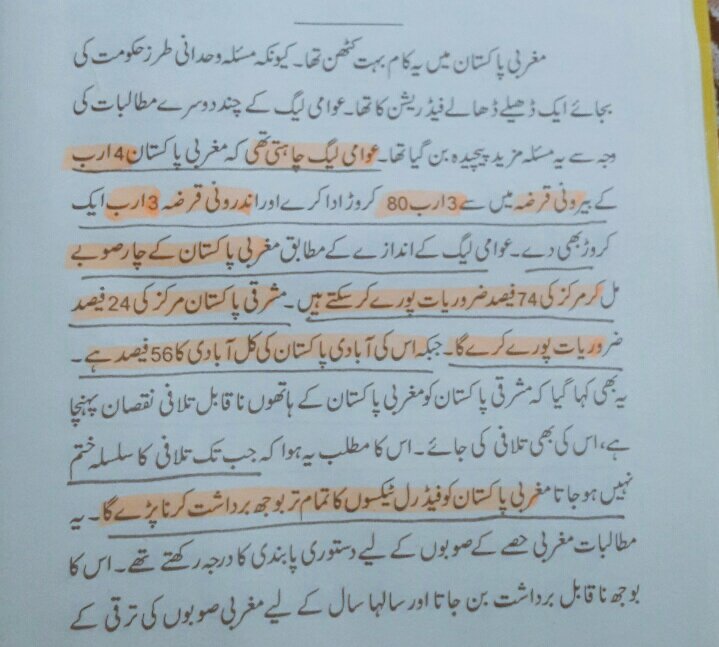 مغربی پاکستان میں یہ کام بہت کٹھن تھا۔ کیونکہ مسئلہ وحدانی طرز حکومت کی
بجائے ایک ڈھیلے ڈھالے فیڈریشن کا تھا۔ عوامی لیگ کے چند دوسرے مطالبات کی
وجہ سے یہ مسئلہ مزید پیچیدہ بن گیا تھا۔ عوامی لیگ چاہتی تھی کہ مغربی پاکستان 4 ارب
کے بیرونی قرضہ میں سے 3 ارب 80 کروڑ ادا کرے اور اندرونی قرضہ 3 ارب ایک
کروڑ بھی دے۔ عوامی لیگ کے اندازے کے مطابق مغربی پاکستان کے چار صوبے
مل کر مرکز کی 74 فیصد ضروریات پورے کر سکتے ہیں۔ مشرقی پاکستان مرکز کی 24 فیصد
ضروریات پورے کرے گا۔ جبکہ اس کی آبادی پاکستان کی کل آبادی کا 56 فیصد ہے۔
یہ بھی کہا گیا کہ مشرقی پاکستان کو مغربی پاکستان کے ہاتھوں ناقابل تلافی نقصان پہنچا
ہے، اس کی بھی تلافی کی جائے۔ اس کا مطلب یہ ہوا کہ جب تک تلافی کا سلسلہ ختم
نہیں ہو جاتا مغربی پاکستان کو فیڈرل ٹیکسوں کا تمام تر بوجھ برداشت کرنا پڑے گا۔ یہ
مطالبات مغربی حصے کے صوبوں کے لیے دستوری پابندی کا درجہ رکھتے تھے۔ اس کا
بوجھ ناقابل برداشت بن جاتا اور سالہا سال کے لیے مغربی صوبوں کی ترقی کے